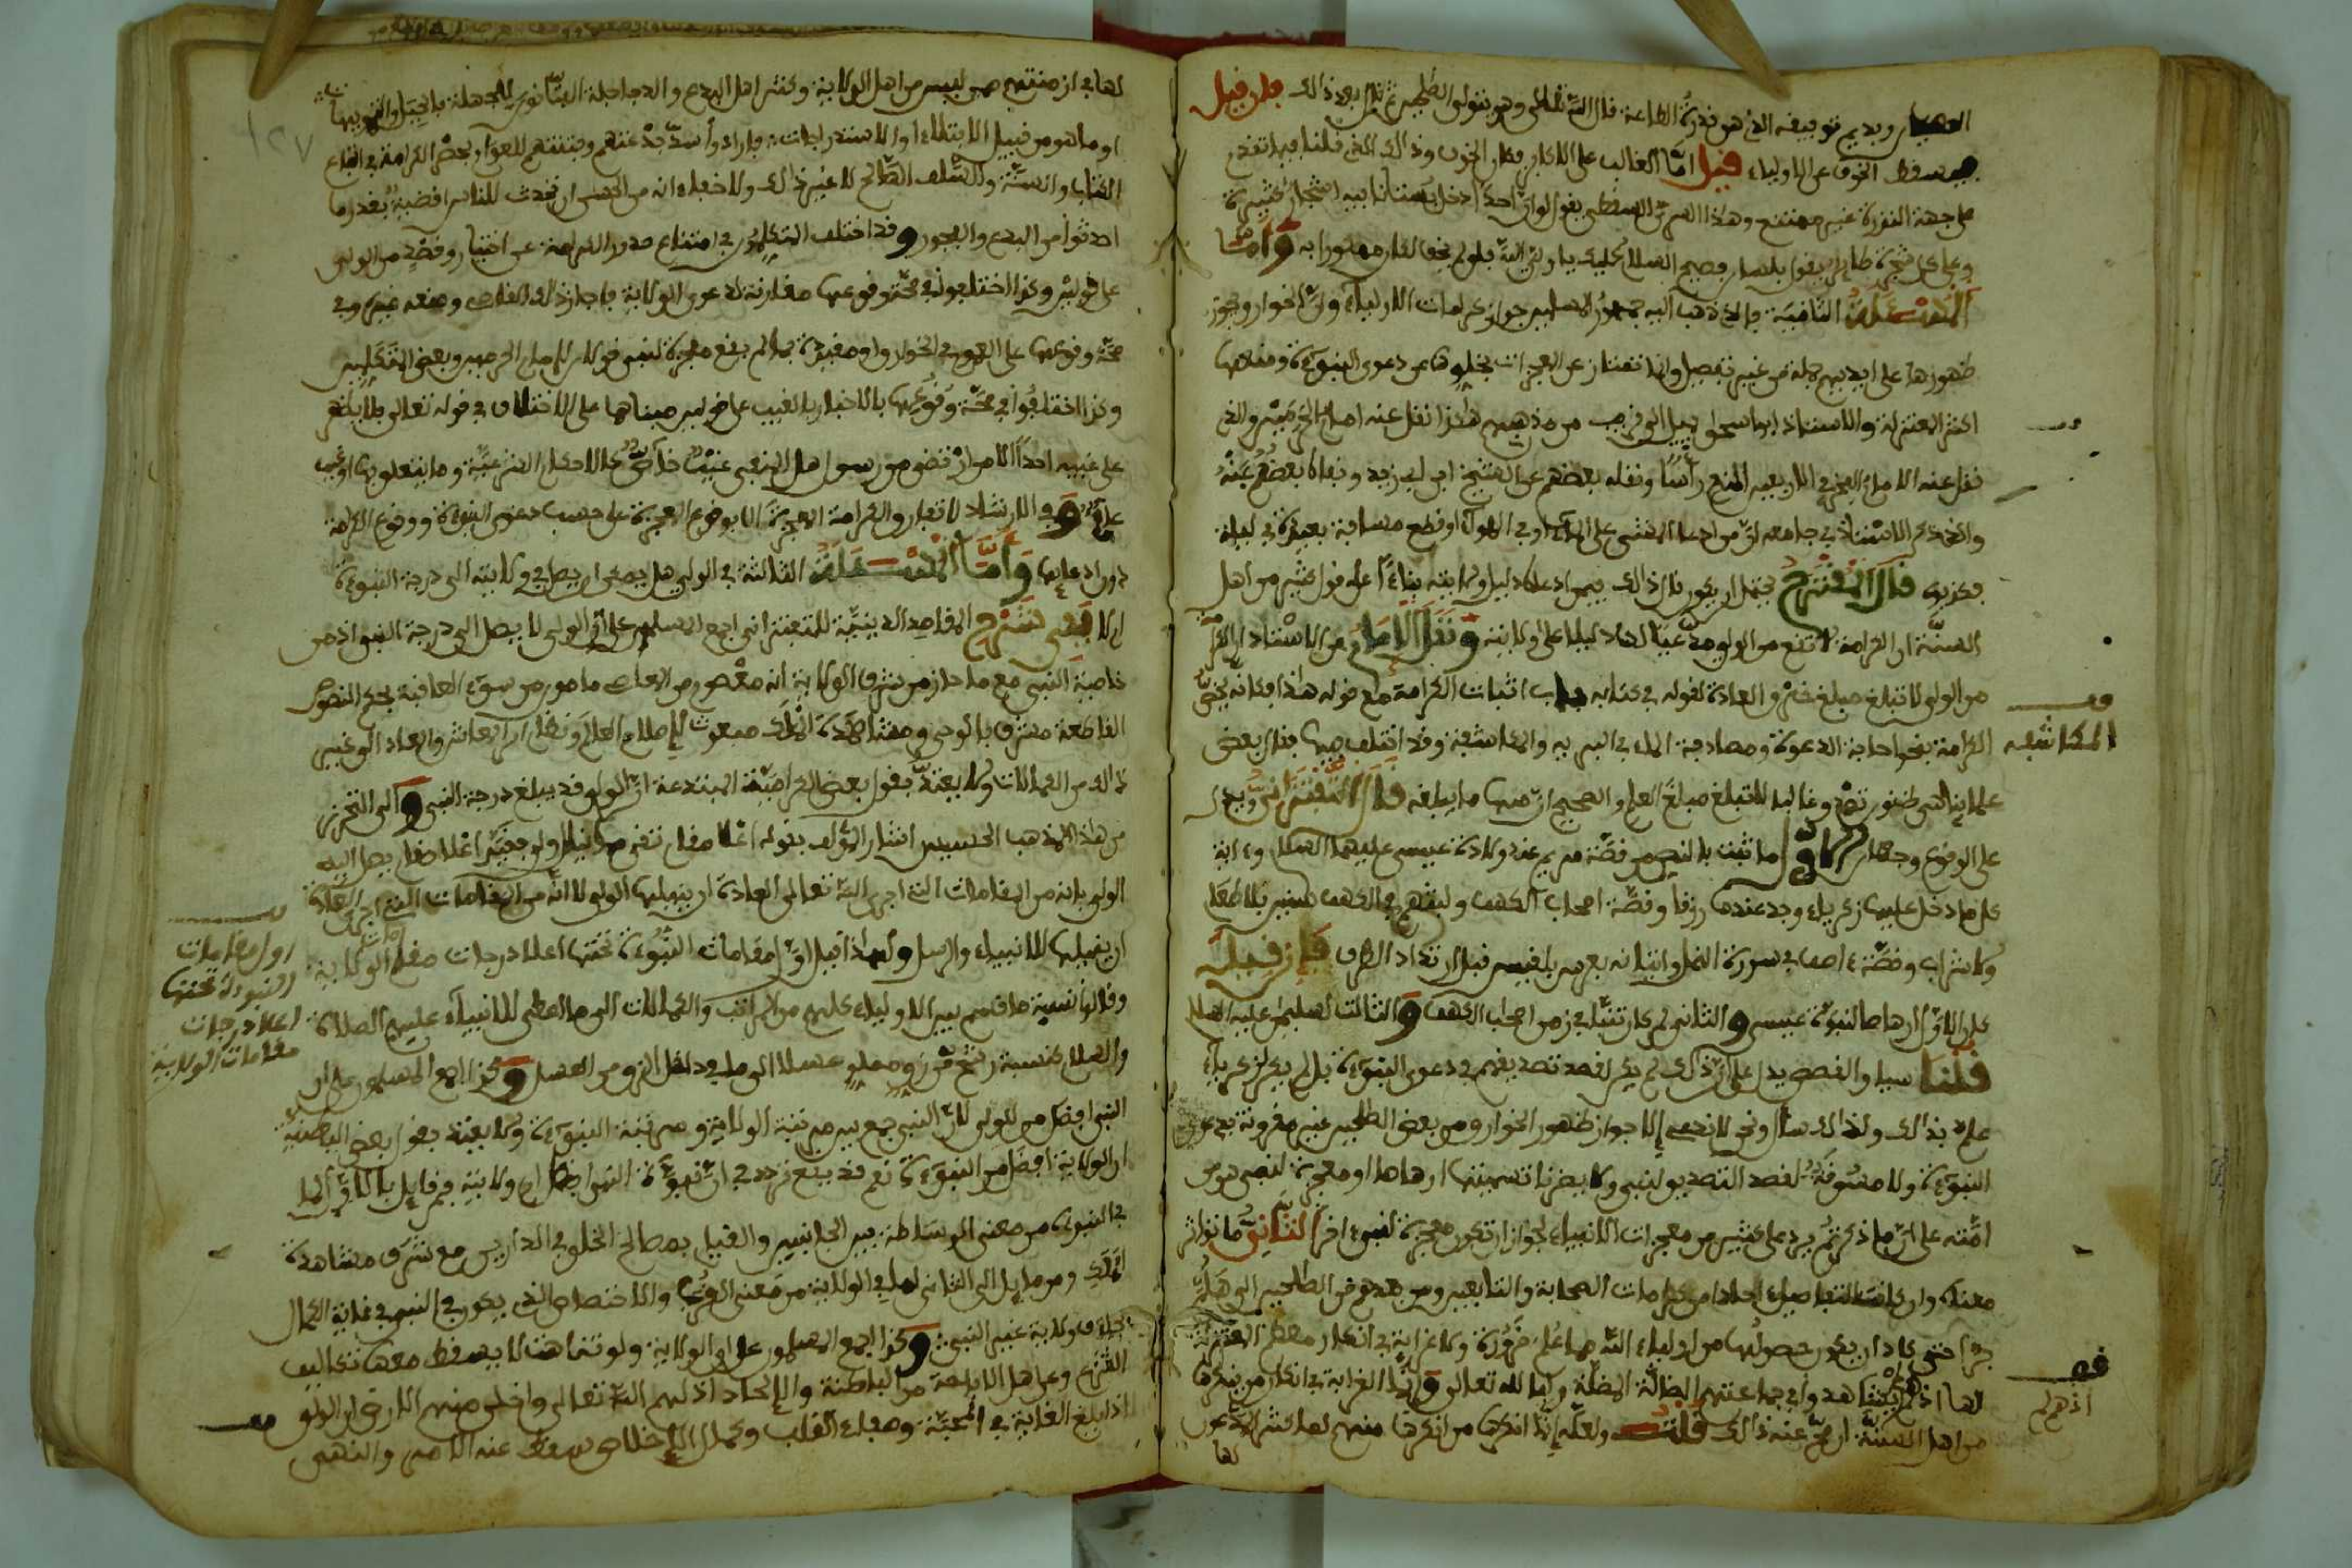 العصيان ويديم توفيقه الذي هو قدرة الطاعة قال الله تعالى وهو يتولى الصالحين ذالك فان قيل
فهل يسقط الخوف عن الاولياء قيل اما الغالب على الاكابر فكان الخوف وذالك الذي قلنا فيما تقدم
على جهة الندرة غير ممتنع وهذا السري السقطي يقول لو ان احدا دخل بستانا فيه اشجار كثيرة
وعلى كل شجرة طائر يقول بلسان فصيح السلام عليك يا ولي الله فلو لم يخف لكان ممكورا به واما
المسئلة الثانية فالذي ذهب اليه جمهور المسلمين جواز كرامات الاولياء وان الخوارق يجوز
ظهورها على ايديهم جملة من غير تفصيل وانما تمتاز عن المعجزات بخلوها عن دعوى النبوءة ومنعها
اكثر المعتزلة والاستاذ ابو اسحاق يميل الى قريب من مذهبهم هاكذا نقل عنه امام الحرمين والذي
نقل عنه الامام الفخر في الاربعين المنع رأسا ونقله بعضهم عن الشيخ ابن ابي زيد ونفاه بعضهم عنه
والذي ذكر الاستاذ في جامعه ان من ادعى المشي على الماء او في الهواء او قطع مسافة بعيدة في ليلة
فكذبوه قال المقترح يحتمل ان يكون قال ذالك فيمن ادعاه دليل ولايته بناء على قول كثير من اهل
السنة ان الكرامة لا تقع من الولي مدعيا لها دليلا على ولايته ونقل الامام عن الاستاذ ان الكرامة
من الولي لا تبلغ مبلغ خرق العادة لقوله في كتابه باب اثبات الكرامة مع قوله هذا فكانه يخص
الكرامة بنحو اجابة الدعوة ومصادفة الماء في البرية والمكاشفة وقد اختلف فيها فقال بعض
المكاشفة
علمائنا هي ظنون تصدق غالبا لا تبلغ مبلغ العلم والصحيح ان منها ما يبلغه قال التفتزاني ويدل
على الوقوع وجهان الاول ما ثبت بالنص من قصة مريم عند ولادة عيسى عليهما السلام وءاية
كلما دخل عليها زكرياء وجد عندها رزقا وقصة اصحاب الكهف ولبثهم في الكهف سنين بلا طعام
ولا شراب وقصة ءاصف في سورة النمل واتيانه بعرش بلقيس قبل ارتداد الطرف فان قيل
كان الاول ارهاصا لنبوءة عيسى والثاني لم كان نبيا في زمن اصحاب الكهف والثالث لسليمان عليه السلام
قلنا سياق القصص يدل على ان ذالك لم يكن لقصد تصديقهم في دعوى النبوءة بل لم يكن لزكرياء
علم بذالك ولذالك سأل ونحن لا ندعي الا جواز ظهور الخوارق من بعض الصالحين غير مقرونة بدعوى
النبوءة ولا مسوقة لقصد التصديق لنبي ولا يضرنا تسميتها ارهاصا او معجزة لنبي هو من
امته على ان ما ذكرتم يرد على كثير من معجزات الانبياء لجواز ان تكون معجزة لنبي ءاخر الثاني ما تواتر
معناه وان كانت التفاصيل ءاحادا من كرامات الصحابة والتابعين ومن بعدهم من الصالحين الى هلم
جرا حتى كاد ان يكون حصولها من اولياء الله مما علم ضرورة ولا غرابة في انكار معظم المعتزلة
لها اذ لم يشاهدوا في جماعتهم الضالة المضلة وليا لله تعالى وانما الغرابة في انكار من ينكرها
اذ هم لم
من اهل السنة ان صح عنه ذالك قلت ولعله انما انكرها من انكرها منهم لما كثر الادعاء
لها
لها في ازمنتهم ممن ليس من اهل الولاية وكثر اهل البدع والدجاجلة
او ما هو من قبيل الابتلاء او الاستدراجات فارادوا سد بدعتهم وفتنتهم للعوام بحصر الكرامة في اتباع
الكتاب والسنة والسلف الصالح لا غير ذالك ولا خفاء انه من الحسن ان تحدث للناس اقضية بقدر ما
احدثوا من البدع والفجور وقد اختلف المتكلمون في امتناع صدور الكرامة عن اختيار وقصد من الولي
على قولين وكذا اختلفوا في صحة وقوعها مقارنة لدعوى الولاية فاجاز ذالك القاضي ومنعه غيره وفي
صحة وقوعها على العموم في الخوارق او مقيدة بما لم يقع معجزة لنبي قولان لامام الحرمين وبعض المتكلمين
وكذا اختلفوا في صحة وقوعها بالاخبار بالغيب على قولين مبناهما على الاختلاف في قوله تعالى فلا يظهر
على غيبه احدا الا من ارتضى من رسول هل المنفي غيب خاص كالاحكام الشرعية وما يتعلق بها او غيب
عام وفي الارشاد لا تفارق الكرامة المعجزة الا بوقوع المعجزة على حسب دعوى النبوءة ووقوع الكرامة
دون ادعائها واما المسئلة الثالثة في الولي هل يصح ان يصل في ولايته الى درجة النبوءة
ام لا ففي شرح المقاصد الدينية للتفتزاني اجمع المسلمون على ان الولي لا يصل الى درجة النبي اذ من
خاصية النبي مع ما حاز من شرف الولاية انه معصوم من المعاصي مامون من سوء العاقبة بحكم النصوص
القاطعة مشرف بالوحي ومشاهدة الملك مبعوث لاصلاح العالم ونظام امر المعاش والمعاد الى غير
ذالك من الكمالات ولا يعتد بقول بعض الكرامية المبتدعة ان الولي قد يبلغ درجة النبي والى التحرز
من هذا المذهب الخسيس اشار المؤلف بقوله
الولي بانه من المقامات التي اجرى الله تعالى العادة ان ينيلها الولي لا انه من المقامات التي اجرى العادة
ان ينيلها للانبياء والرسل ولهذا قيل اول مقامات النبوءة تحتها اعلا درجات مقام الولاية
اول مقامات
النبوءة تحتها
اعلا درجات
مقامات الولاية
وقالوا نسبة ما قسم بين الاولياء كلهم من المراتب والكمالات الى ما اعطى للانبياء عليهم الصلاة
والسلام كنسبة رشح زق مملو عسلا الى ما في داخل الزق من العسل وكذا اجمع المسلمون على ان
النبي افضل من الولي لان النبي جمع بين مرتبة الولاية ومرتبة النبوءة ولا يعتد بقول بعض الباطنية
ان الولاية افضل من النبوءة نعم قد يقع تردد في ان نبوءة النبي افضل ام ولايته فمن قايل بالاول لما
في النبوءة من معنى الوساطة بين الجانبين والقيام بمصالح الخلق في الدارين مع شرف مشاهدة
الملك ومن مايل الى الثاني لما في الولاية من معنى القرب والاختصاص الذي يكون في النبي في غاية الكمال
بخلاف ولاية غير النبي وكذا اجمع المسلمون على ان الولاية ولو تناهت لا يسقط معها تكاليف
الشرع وعن اهل الاباحة من الباطنة والالحاد اذلهم الله تعالى واخلى منهم الارض ان الولي
اذا بلغ الغاية في المحبة وصفاء القلب وكمال الاخلاص سقط عنه الامر والنهي